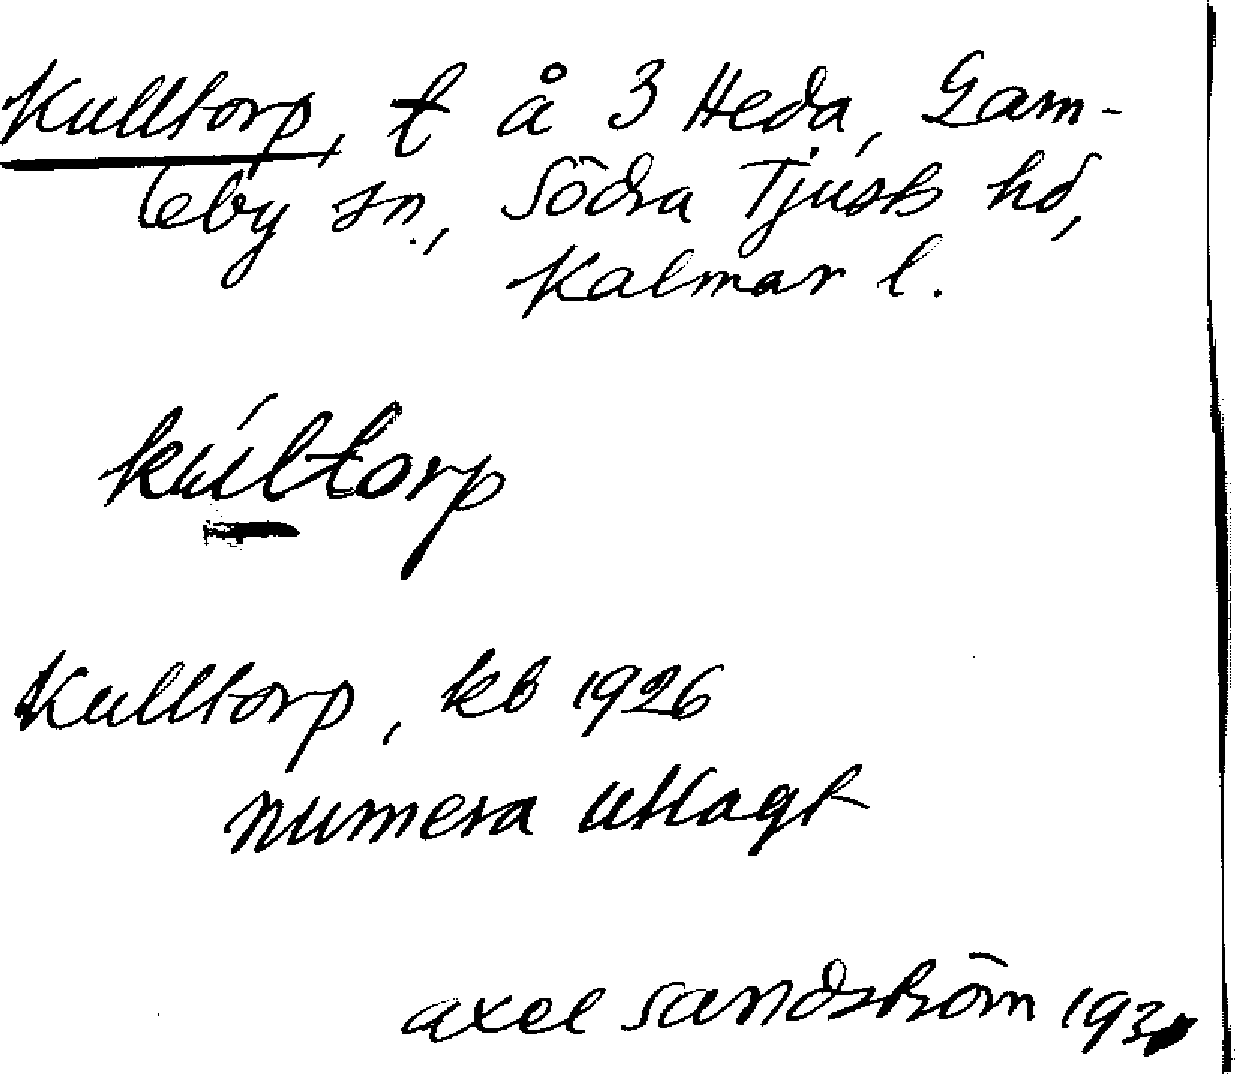 Kulltorp, t å 3 Heda, Gam-
leby sn., Södra Tjust hd,
Kalmar l.
kúltorp
Kulltorp, kb 1926
numera utlagt
Axel Sandström